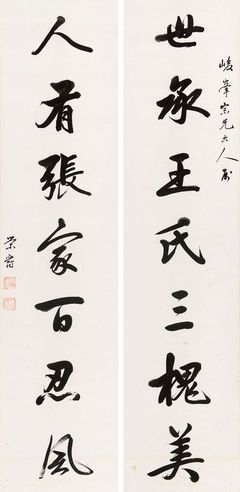 峻峯宗兄大人屬
世承王氏三槐美
人有張家百忍風
榮